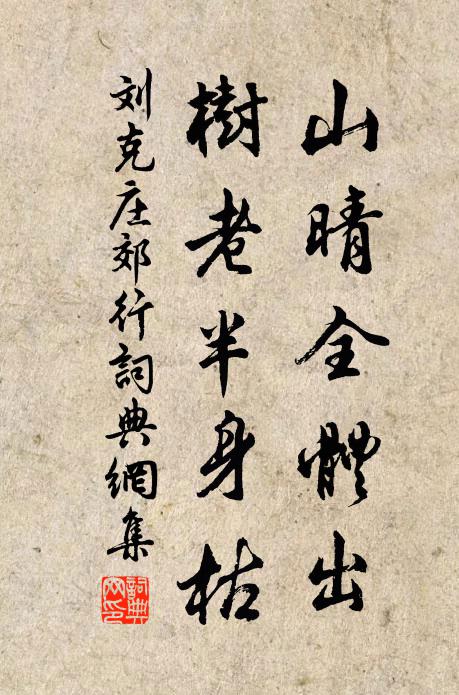 山晴全體出
樹老半身枯
刘克庄郊行詞典網集
詞典网印